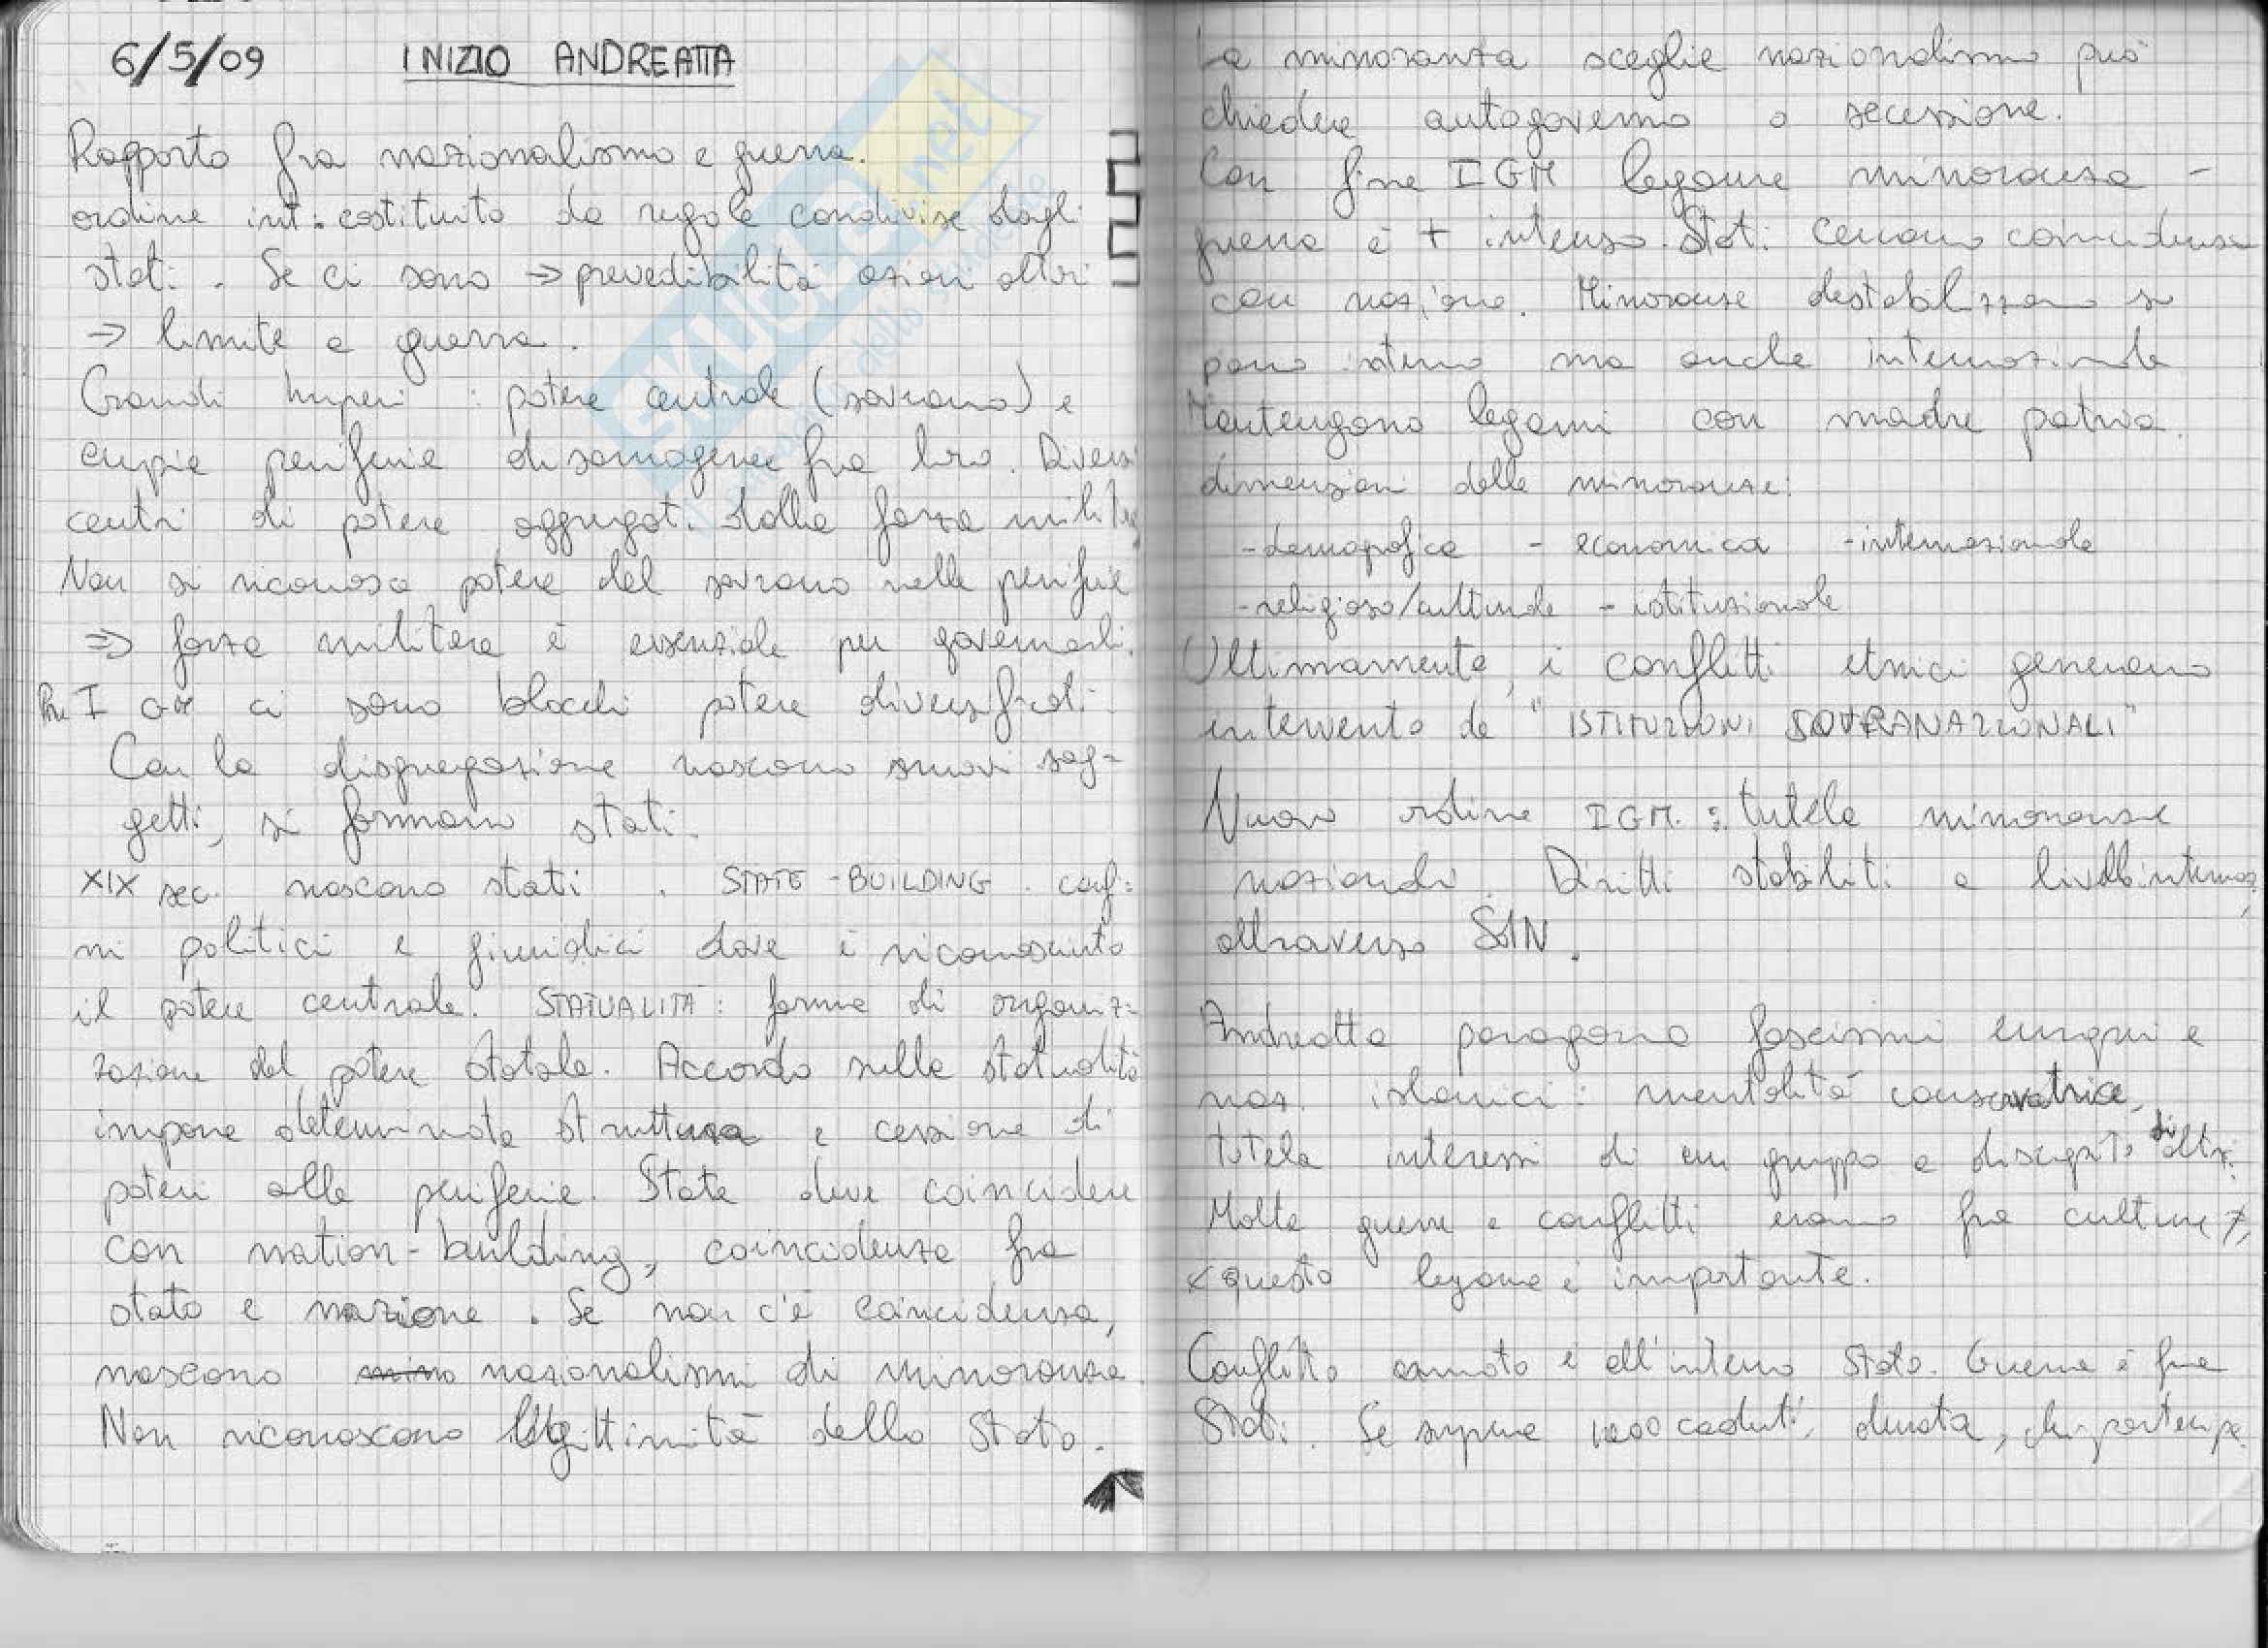 6/5/09 INIZIO ANDREATTA
Rapporto fra nazionalismo e guerra.
ordine int. costituito da regole condivise dagli
stati. Se ci sono => prevedibilità azioni altrui
=> limite a guerra.
Grandi Imperi : potere centrale (sovrano) e
ampie periferie disomogenee fra loro. Diversi
centri di potere aggregati dalla forza militare
Non si riconosce potere del sovrano nelle periferie
=> forza militare è essenziale per governarli.
Pre I GM ci sono blocchi potere diversificati.
Con la disgregazione nascono nuovi sog-
getti, si formano stati.
XIX sec. nascono stati. STATE-BUILDING. confi-
ni politici e giuridici dove è riconosciuto
il potere centrale. STATUALITÀ: forma di organiz-
zazione del potere statale. Accordo sulla statualità
impone determinata struttura e cessione di
poteri alle periferie. State deve coincidere
con nation-building, coincidenza fra
stato e nazione. Se non c'è coincidenza,
nascono nazionalismi di minoranza.
Non riconoscono legittimità dello Stato.
La minoranza sceglie nazionalismo può
chiedere autogoverno o secessione.
Con fine IGM legame minoranza -
guerra è + intenso. Stati cercano coincidenza
con nazione. Minoranze destabilizzano su
piano interno ma anche internazionale
Mantengono legami con madre patria.
dimensioni delle minoranze:
-demografica - economica -internazionale
-religiosa/culturale - istituzionale
Ultimamente, i conflitti etnici generano
intervento da "ISTITUZIONI SOVRANAZIONALI"
Nuovo ordine IGM.: tutela minoranze
nazionali. Diritti stabiliti a livello internaz,
attraverso SdN.
Andreatta paragona fascismi europei e
naz. islamici: mentalità conservatrice,
tutela interessi di un gruppo a discapito di altri.
Molte guerre e conflitti erano fra culture ≠,
x questo legame è importante.
Conflitto armato è all'interno Stato. Guerra è fra
Stati. Se supera 1000 caduti, durata,